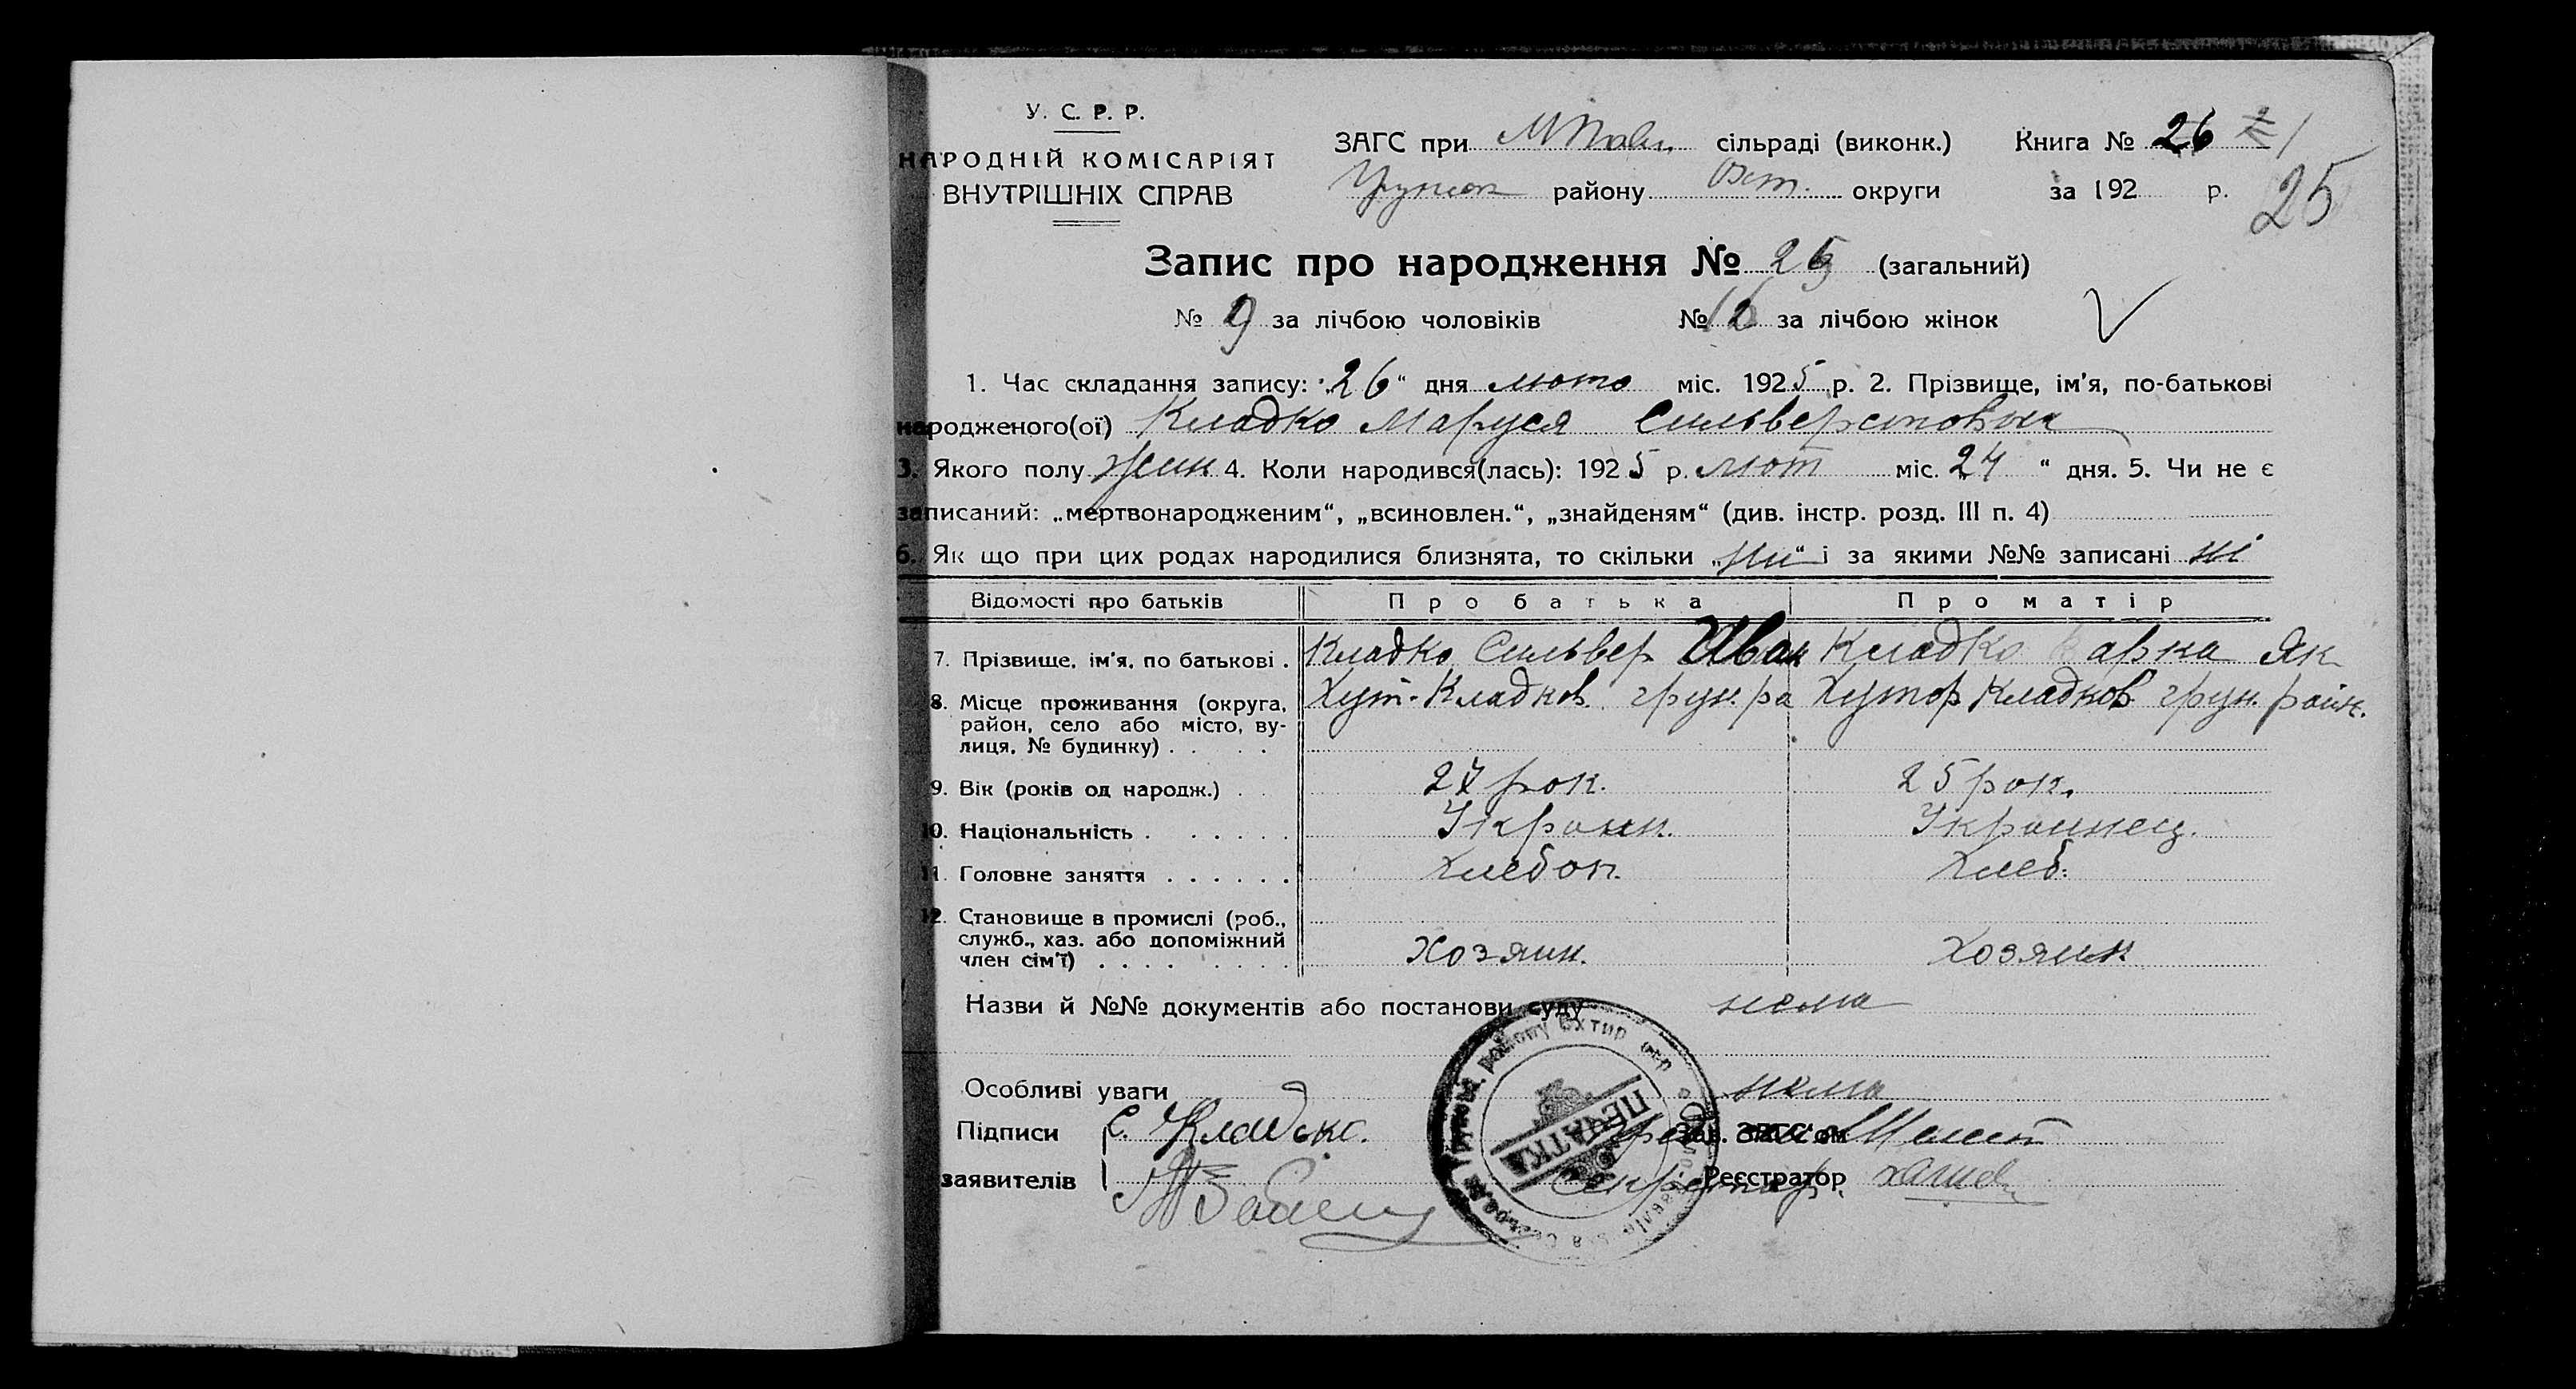 У. С. Р. Р.
НАРОДНІЙ КОМІСАРІЯТ
ВНУТРІШНІХ СПРАВ
ЗАГС при сільраді (виконк.) Книга № 26
району округи за 192 р.
25
Запис про народження № 25 (загальний)
№ 9 за лічбою чоловіків № 16 за лічбою жінок
1. Час складання запису: „26“ дня люто міс. 1925 р. 2. Прізвище, ім'я, по-батькові
народженого(ої) Кладко Маруся Сильверстовна
3. Якого полу жин 4. Коли народився(лась): 1925 р. лют міс. „24“ дня. 5. Чи не є
записаний: „мертвонародженим“, „всиновлен.“, „знайденям“ (див. інстр. розд. III п. 4)
6. Як що при цих родах народилися близнята, то скільки „ни“ і за якими №№ записані ні
Відомості про батьків Про батька Про матір
7. Прізвище, ім'я, по батькові . Кладко Сильвер Иван Кладко арка Як
8. Місце проживання (округа, район, село або місто, вулиця, № будинку) . . . . Хут. Кладков грун. ра Хутор Кладков грун. район.
9. Вік (років од народж.) . . 27 рок. 25 рок.
10. Національність . . . . . . Украин. Украинец.
11. Головне заняття . . . . . . Хлебоп. Хлеб.
12. Становище в промислі (роб., служб., хаз. або допоміжний член сім'ї) . . . . . . . . Хозяин. Хозяин
Назви й №№ документів або постанови суду нема
Особливі уваги нема
Підписи С. Кладько. Зав. ЗАГС'ом
заявителів Секретар Реєстратор
ПЕЧАТКА